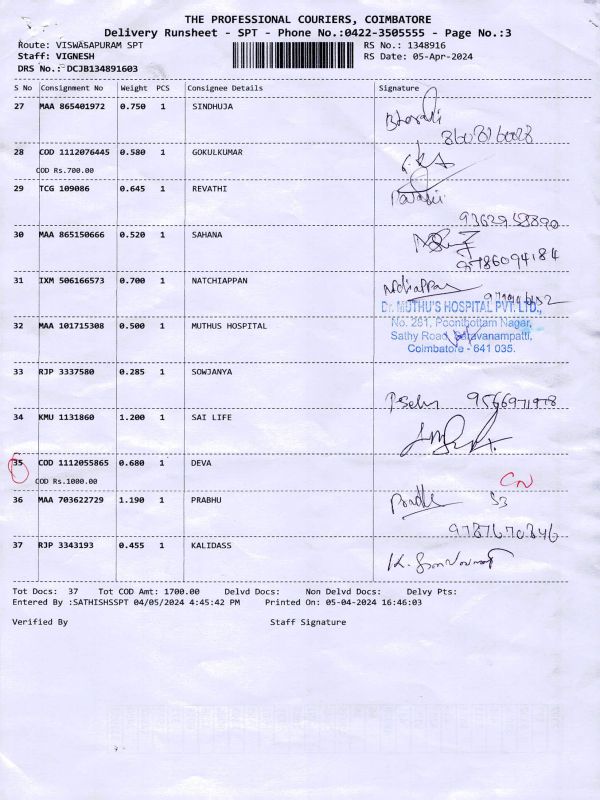 THE PROFESSIONAL COURIERS, COIMBATORE
Delivery Runsheet - SPT - Phone No.:0422-3505555 - Page No.:3
Route: VISWASAPURAM SPT RS No.: 1348916
Staff: VIGNESH RS Date: 05-Apr-2024
DRS No.: DCJB134891603
S No Consignment No Weight PCS Consignee Details Signature
27 MAA 865401972 0.750 1 SINDHUJA
Bharathi
8608260028
28 COD 1112076445 0.580 1 GOKULKUMAR
COD Rs.700.00
29 TCG 109086 0.645 1 REVATHI
30 MAA 865150666 0.520 1 SAHANA
9786094184
31 IXM 506166573 0.700 1 NATCHIAPPAN
Dr. MUTHU'S HOSPITAL PVT. LTD.,
32 MAA 101715308 0.500 1 MUTHUS HOSPITAL
No. 261, Poonthottam Nagar,
Sathy Road, Saravanampatti,
Coimbatore - 641 035.
33 RJP 3337580 0.285 1 SOWJANYA
9566971978
34 KMU 1131860 1.200 1 SAI LIFE
35 COD 1112055865 0.680 1 DEVA
COD Rs.1000.00
CN
36 MAA 703622729 1.190 1 PRABHU
53
9787670846
37 RJP 3343193 0.455 1 KALIDASS
Tot Docs: 37 Tot COD Amt: 1700.00 Delvd Docs: Non Delvd Docs: Delvy Pts:
Entered By :SATHISHSSPT 04/05/2024 4:45:42 PM Printed On: 05-04-2024 16:46:03
Verified By Staff Signature